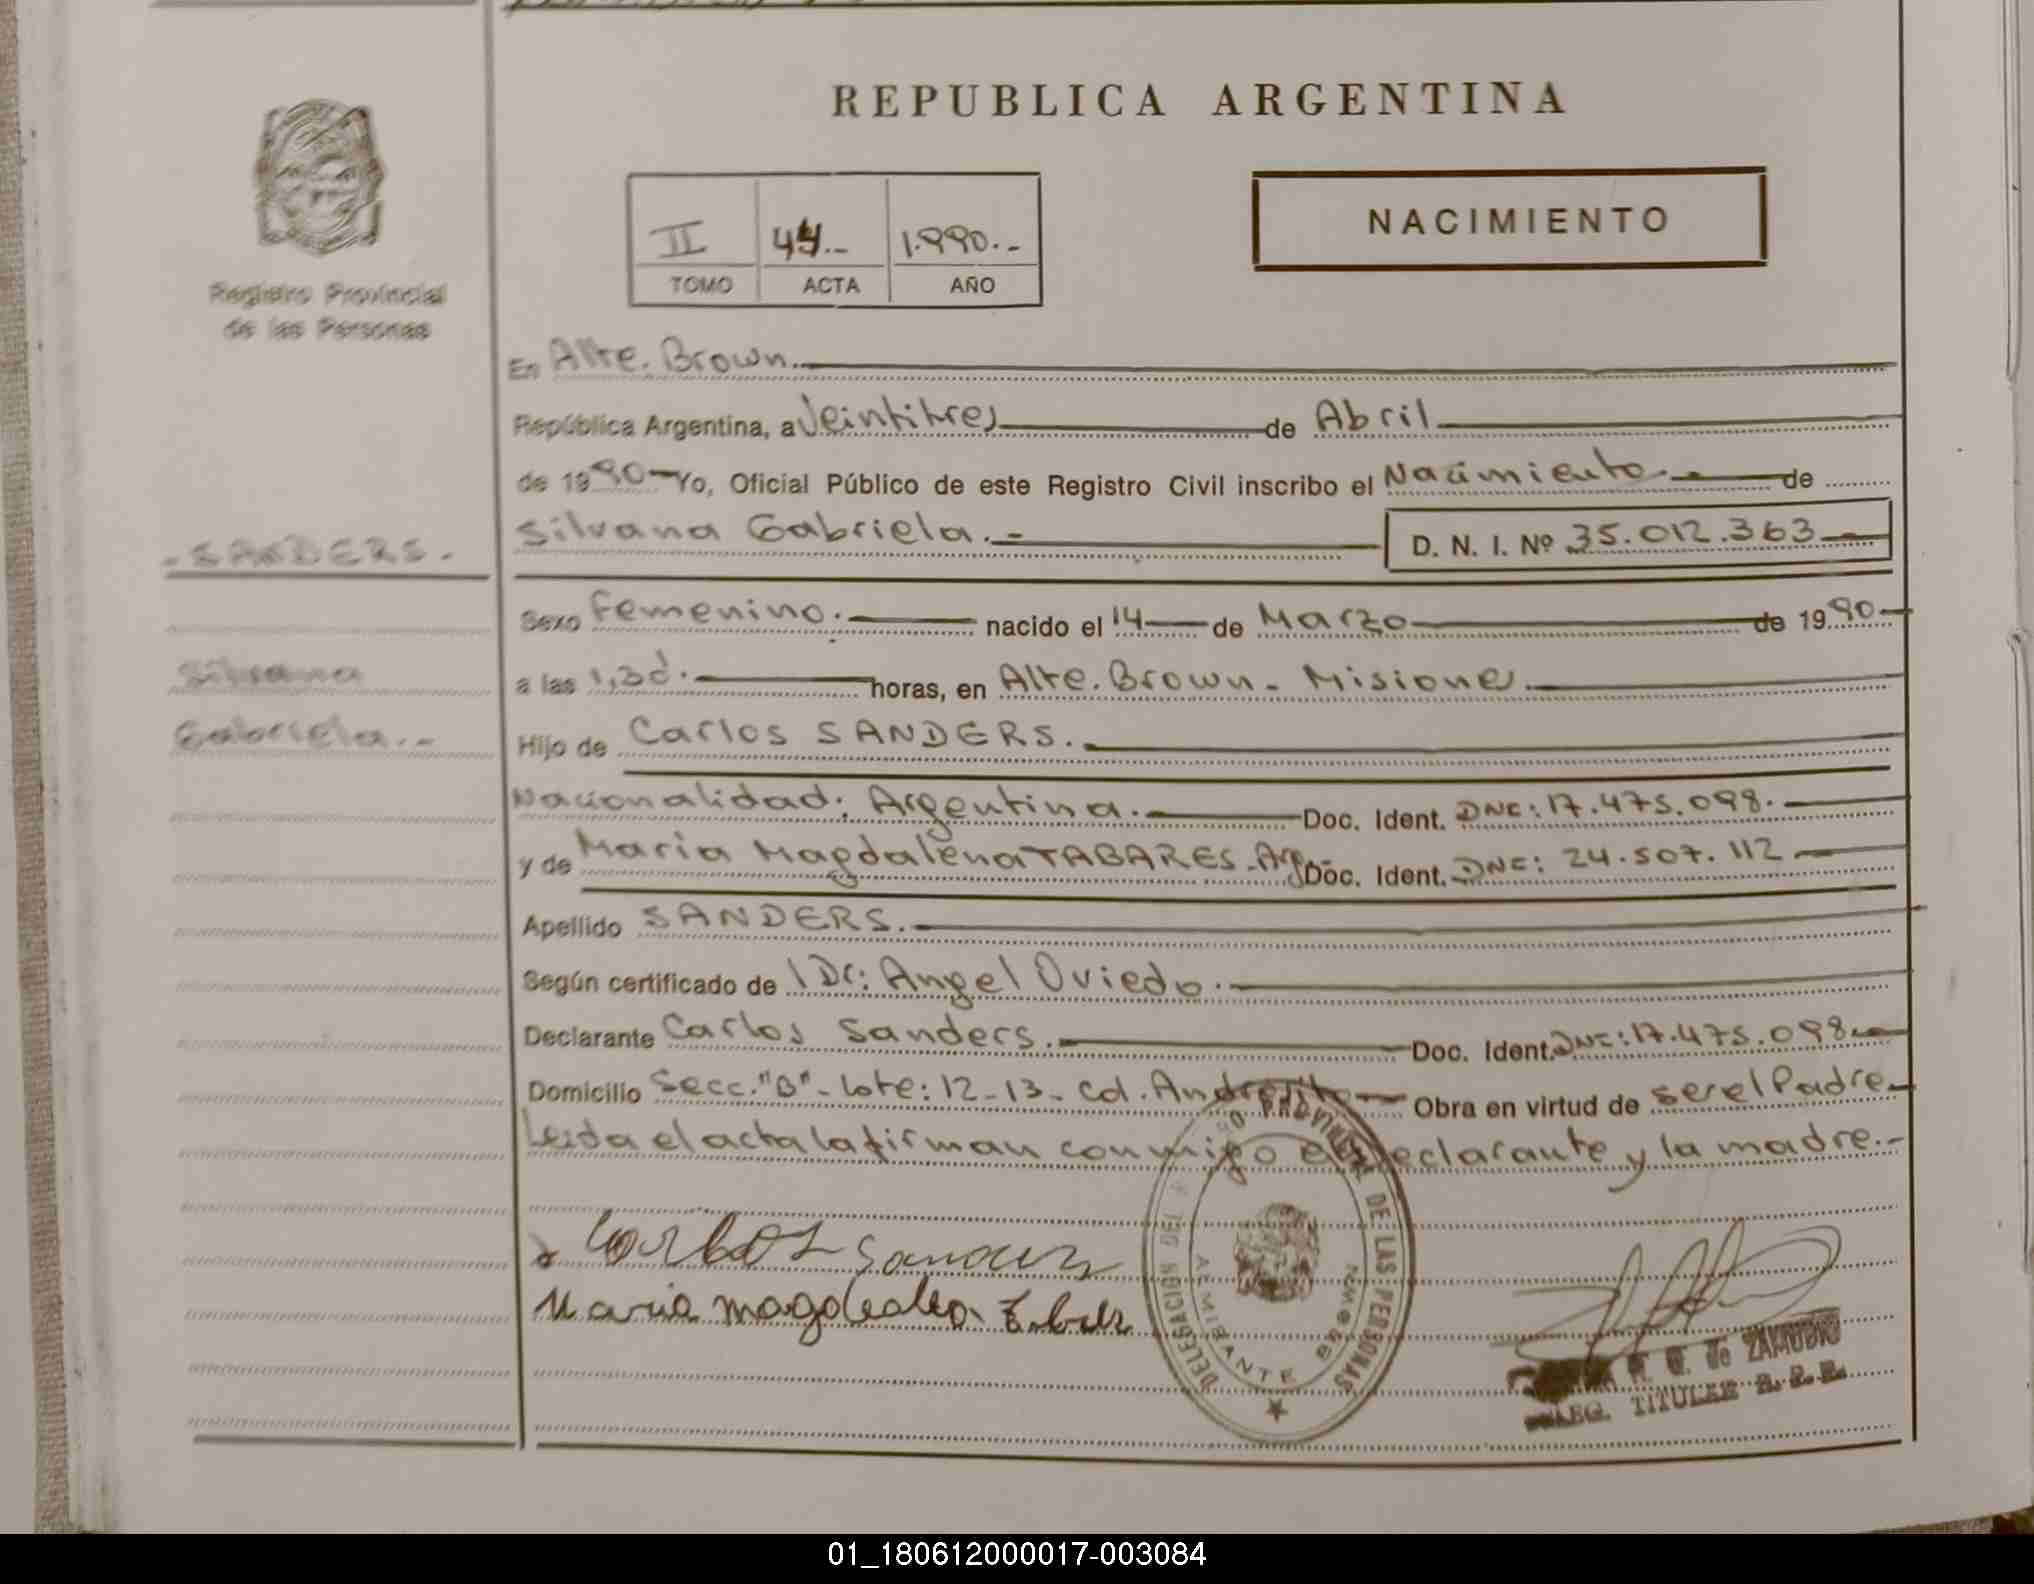 REPUBLICA ARGENTINA
Registro Provincial
de las Personas
II 44.- 1.990.-
TOMO ACTA AÑO
NACIMIENTO
En Alte. Brown.
República Argentina, a Veintitres de Abril
de 1990 Yo, Oficial Público de este Registro Civil inscribo el Nacimiento.- de
Silvana Gabriela.- D. N. I. Nº 35.012.363
- SANDERS. -
Silvana
Gabriela.-
Sexo Femenino. nacido el 14 de Marzo de 1990
a las 1,30. horas, en Alte. Brown - Misiones.
Hijo de Carlos SANDERS.
Nacionalidad: Argentina. Doc. Ident. DNE: 17.475.098.
y de Maria Magdalena TABARES - Arg. Doc. Ident. DNE: 24.507.112
Apellido SANDERS.
Según certificado de l Dr: Angel Oviedo.
Declarante Carlos Sanders. Doc. Ident. DNE: 17.475.098.
Domicilio Secc. "B" - Lote: 12-13 - Col. Andresito Obra en virtud de ser el Padre
Leida el acta la firman conmigo el declarante y la madre.-
Carlos Sanders
Maria magdalena
DELEGACIÓN REG PROVINCIAL DE LAS PERSONAS
ALMIRANTE BROWN
de ZAMUDIO
DELEG. TITULAR R. P. P.
01_180612000017-003084